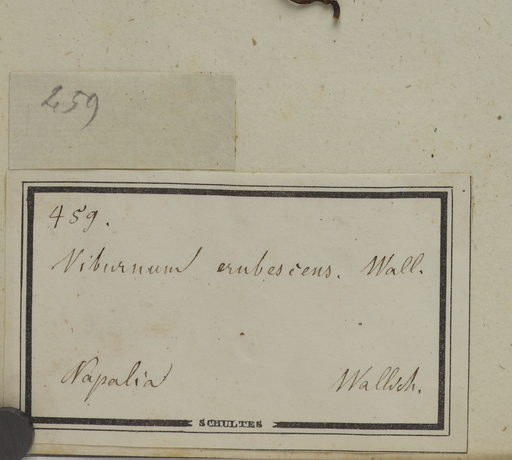 459
459.
Viburnum erubescens. Wall.
Napalia Wallich.
SCHULTES